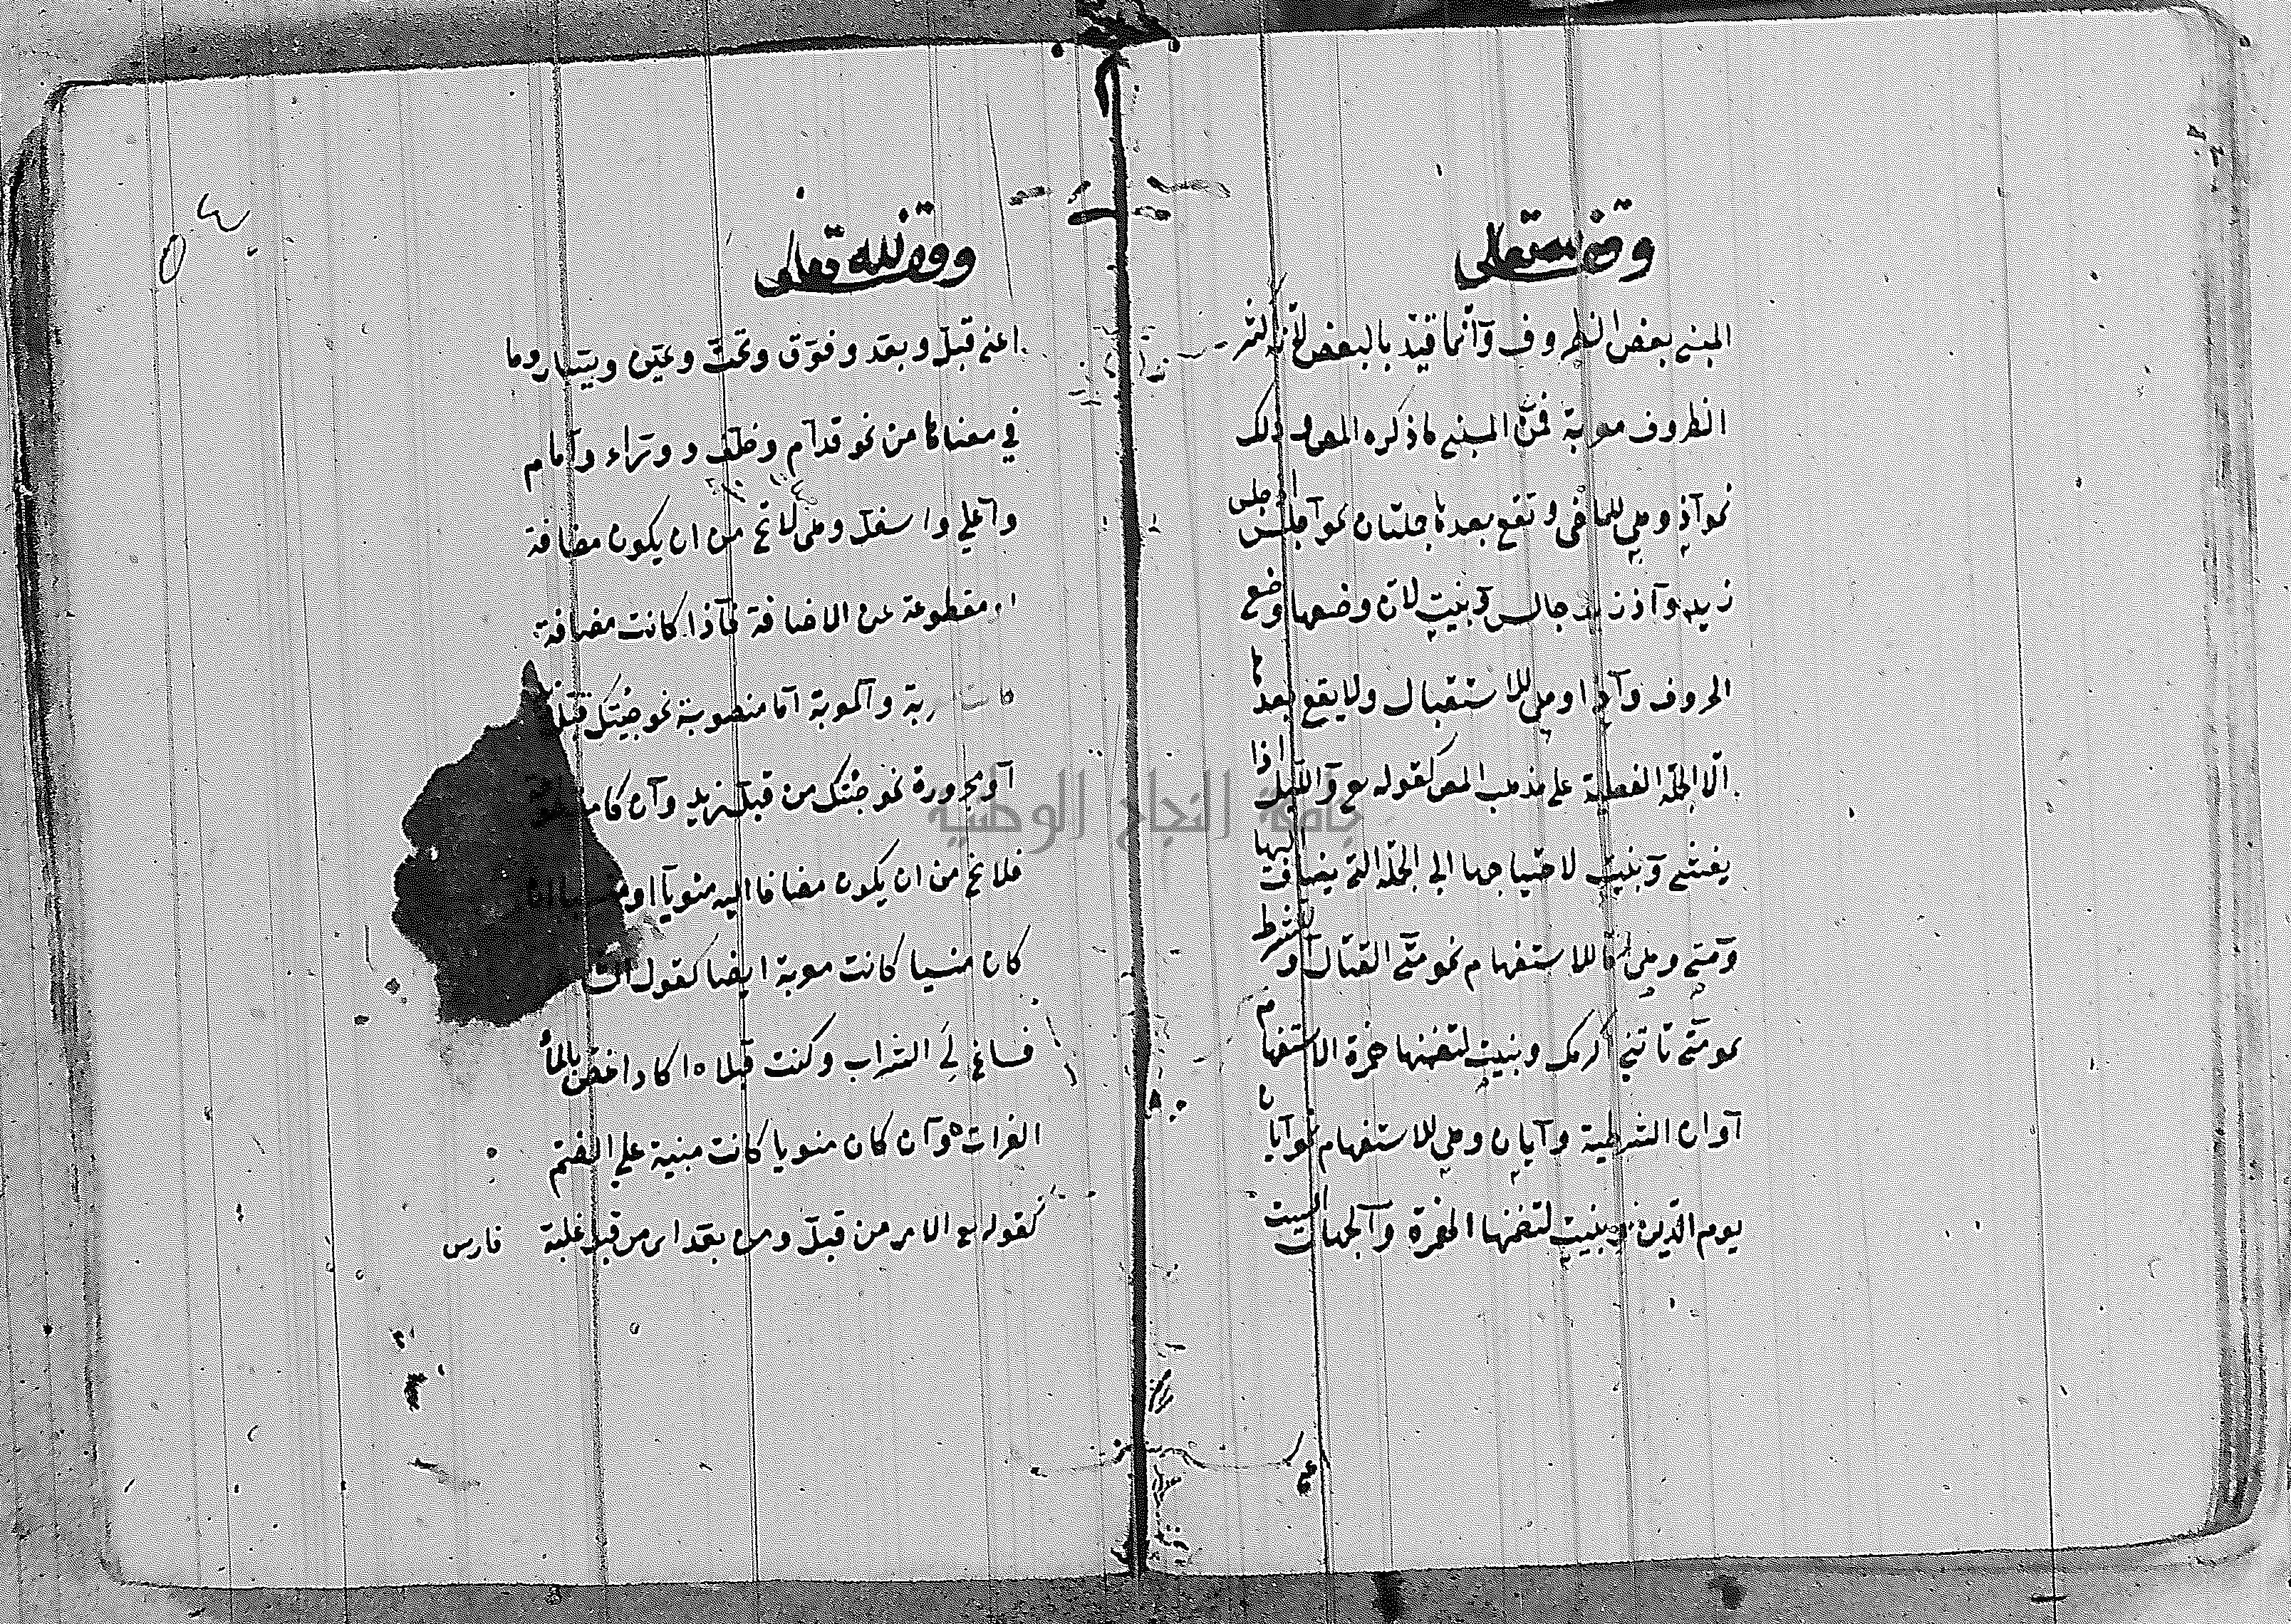 وقف لله تعالى
المبني بعض الظروف وآنما قيد بالبعض لآن آكثر
الظروف معربة فمن المبني ما ذكره المص وذلك
نحو آذ وهي للماضي وتقع بعدها جملتان نحو آجلس اذ جلس
زيد وآذ زيد جالس وبنيت لان وضعها وضع
الحروف وآذا وهي للاستقبال ولا يقع بعدها
الّا الجملة الفعلية على مذهب المص كقوله تع وآلليل اذا
يغشي وبنيت لاحتياجها الى الجملة التي يضاف اليها
وآمتي وهي للاستفهام نحو متي القتال و للشرط
نحو متي تاتني اكرمك وبنيت لتضمنها همزة الاستفهام
آوان الشرطية وآيان وهي للاستفهام نحو آيان
يوم الدّين وبنيت لتضمنها الهمزة وآلجهات الست
وقف لله تعالى
اعني قبل وبعد وفوق وتحت ويمين ويسار وما
في معناها من نحو قدآم وخلف و ورآء وآمام
وآعلي واسفل وهي لا تخ من ان يكون مضافة
او مقطوعة عن الاضافة فآذا كانت مضافة
كانت معربة وآلمعربة آما منصوبة نحو جئتك قبل
آو مجرورة نحو جئتك من قبل زيد وآن كا
فلا تخ من ان يكون مضافا اليه منويآ او منسيا
كان منسيا كانت معربة ايضا كقول الشا
فساغ لي الشراب وكنت قبلا ه اكاد اغص بالماء
الفرات ه وآن كان منويا كانت مبنية علي الضم
كقوله تع الامر من قبل ومن بعد اى من قبل غلبة
فارس
٥٤
جامعة النجاح الوطنية